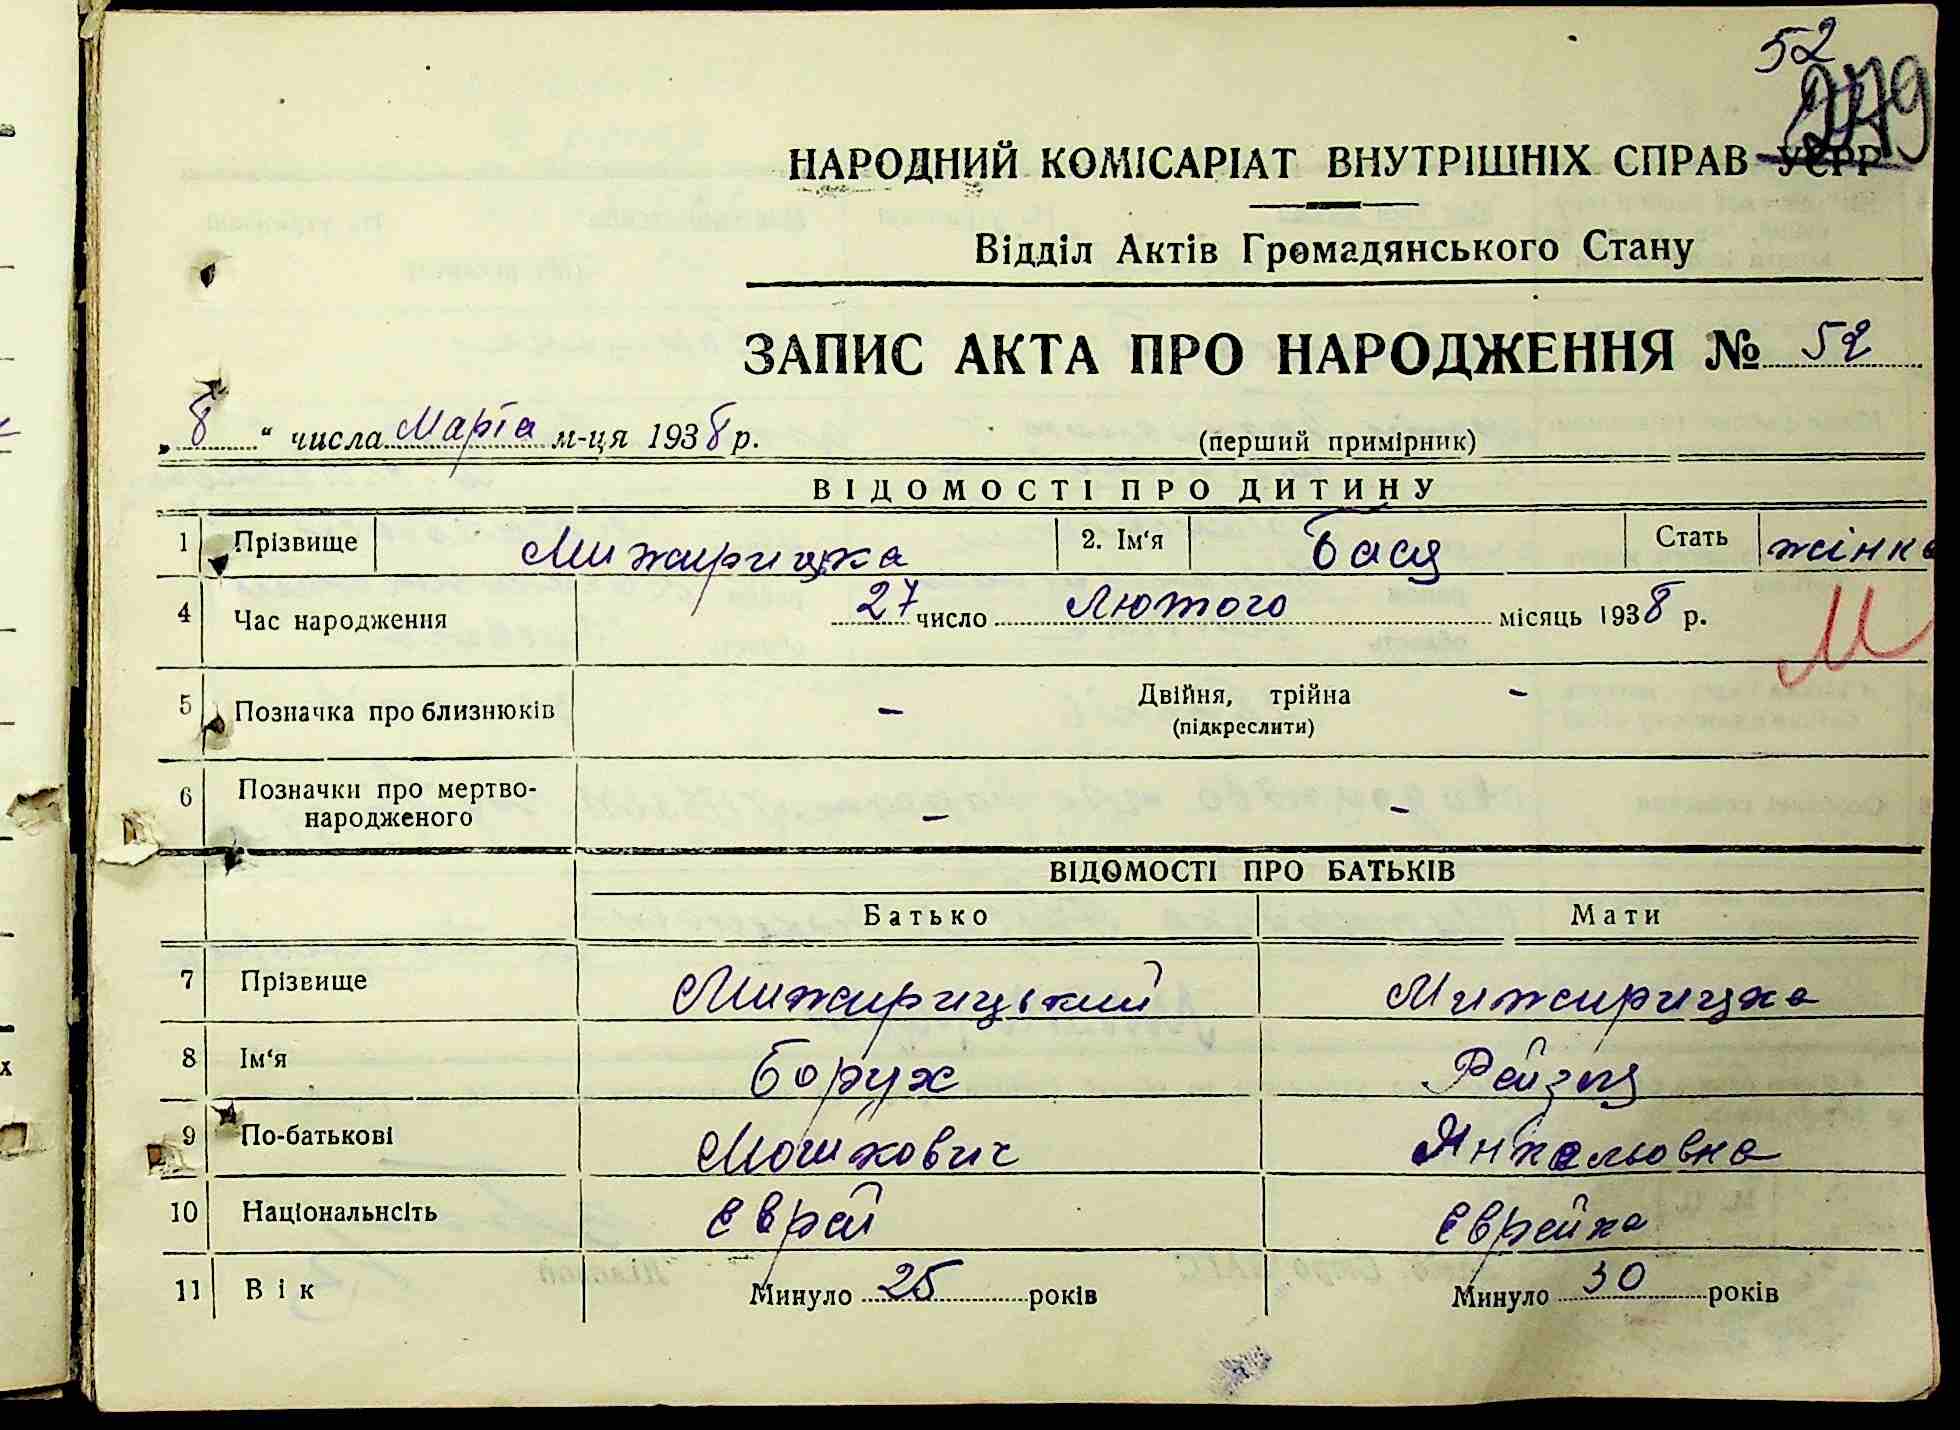 52
279
НАРОДНИЙ КОМІСАРІАТ ВНУТРІШНІХ СПРАВ УСРР
Відділ Актів Громадянського Стану
ЗАПИС АКТА ПРО НАРОДЖЕННЯ № 52
„ 8 “ числа Марта м-ця 1938 р. (перший примірник)
ВІДОМОСТІ ПРО ДИТИНУ
1 Прізвище Мижирицка 2. Ім'я Бася Стать жінка
4 Час народження 27 число Лютого місяць 1938 р.
М
5 Позначка про близнюків – Двійня, трійна –
(підкреслити)
6 Позначки про мертво-
народженого – –
ВІДОМОСТІ ПРО БАТЬКІВ
Батько Мати
7 Прізвище Мижирицький Мижирицка
8 Ім'я Борух Рейзя
9 По-батькові Мошкович Янкельовна
10 Національнсіть Єврей Єврейка
11 Вік Минуло 25 років Минуло 30 років
х